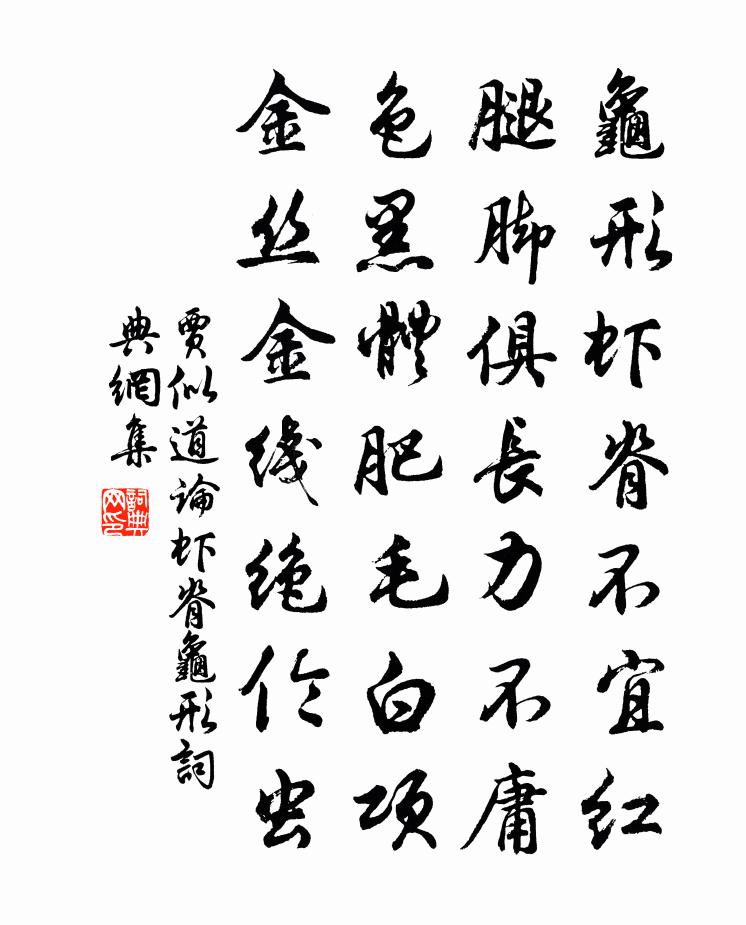 龜形虾脊不宜红
腿脚俱長力不庸
色黑體肥毛白项
金丝金线绝伦虫
賈似道論虾脊龜形詞
典網集
詞典网印